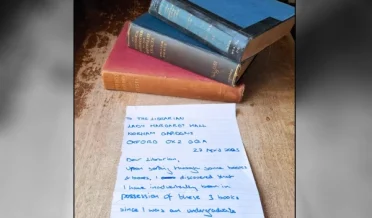 TO THE LIBRARIAN
LADY MARGARET HALL
NORHAM GARDENS
OXFORD OX2 6QA
27 April 2023
Dear Librarian,
Upon sorting through some boxes
of books, I discovered that
I have inadvertently been in
possession of these 3 books
since I was an undergraduate